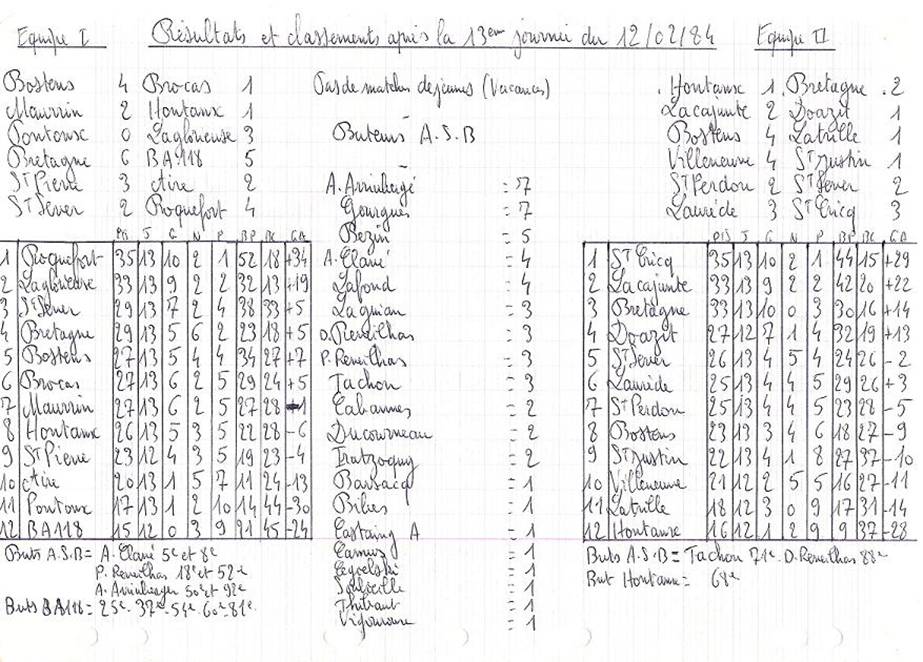 Equipe I
Résultats et classements après la 13em journée du 12/02/84
Equipe II
Bostens 4 Brocas 1
Maurrin 2 Hontanx 1
Pontonx 0 Laglorieuse 3
Bretagne 6 BA118 5
St Pierre 3 Aire 2
St Sever 2 Roquefort 4
Pas de matches de jeunes (Vacances)
Buteurs A.S.B
Hontanx 1 Bretagne 2
Lacajunte 2 Doazit 1
Bostens 4 Latrille 1
Villeneuve 4 St Justin 1
St Perdon 2 St Sever 2
Laurède 3 St Cricq 3
Pts J G N P BP BC GA
1 Roquefort 35 13 10 2 1 52 18 +34
2 Laglorieuse 33 13 9 2 2 32 13 +19
3 St Sever 29 13 7 2 4 38 33 +5
4 Bretagne 29 13 5 6 2 23 18 +5
5 Bostens 27 13 5 4 4 34 27 +7
6 Brocas 27 13 6 2 5 29 24 +5
7 Maurrin 27 13 6 2 5 27 28 -1
8 Hontanx 26 13 5 3 5 22 28 -6
9 St Pierre 23 12 4 3 5 19 23 -4
10 Aire 20 13 1 5 7 11 24 -13
11 Pontonx 17 13 1 2 10 14 44 -30
12 BA118 15 12 0 3 9 21 45 -24
Buts A.S.B = A. Clavé 5e et 8e
P. Reveilhas 18e et 52e
A. Arrubergé 50e et 92e
Buts BA118 = 25e. 37e - 54e. 60e - 81e.
= 7
Gourgues = 7
Bezin = 5
A. Clavé = 4
Lafond = 4
Laguian = 3
D. Reveilhas = 3
P. Reveilhas = 3
Tachon = 3
Cabannes = 2
Ducourneau = 2
= 2
Barsacq = 1
Bibes = 1
Castaing A = 1
Camus = 1
= 1
= 1
Thibaut = 1
Vigouroux = 1
Pts J G N P BP BC GA
1 St Cricq 35 13 10 2 1 44 15 +29
2 Lacajunte 33 13 9 2 2 42 20 +22
3 Bretagne 33 13 10 0 3 30 16 +14
4 Doazit 27 12 7 1 4 32 19 +13
5 St Sever 26 13 4 5 4 24 26 -2
6 Laurède 25 13 4 4 5 29 26 +3
7 St Perdon 25 13 4 4 5 23 28 -5
8 Bostens 23 13 3 4 6 18 27 -9
9 St Justin 22 13 4 1 8 27 37 -10
10 Villeneuve 21 12 2 5 5 16 27 -11
11 Latrille 18 12 3 0 9 17 31 -14
12 Hontanx 16 12 1 2 9 9 37 -28
Buts A.S.B = Tachon 71e. D. Reveilhas 88e
But Hontanx = 68e